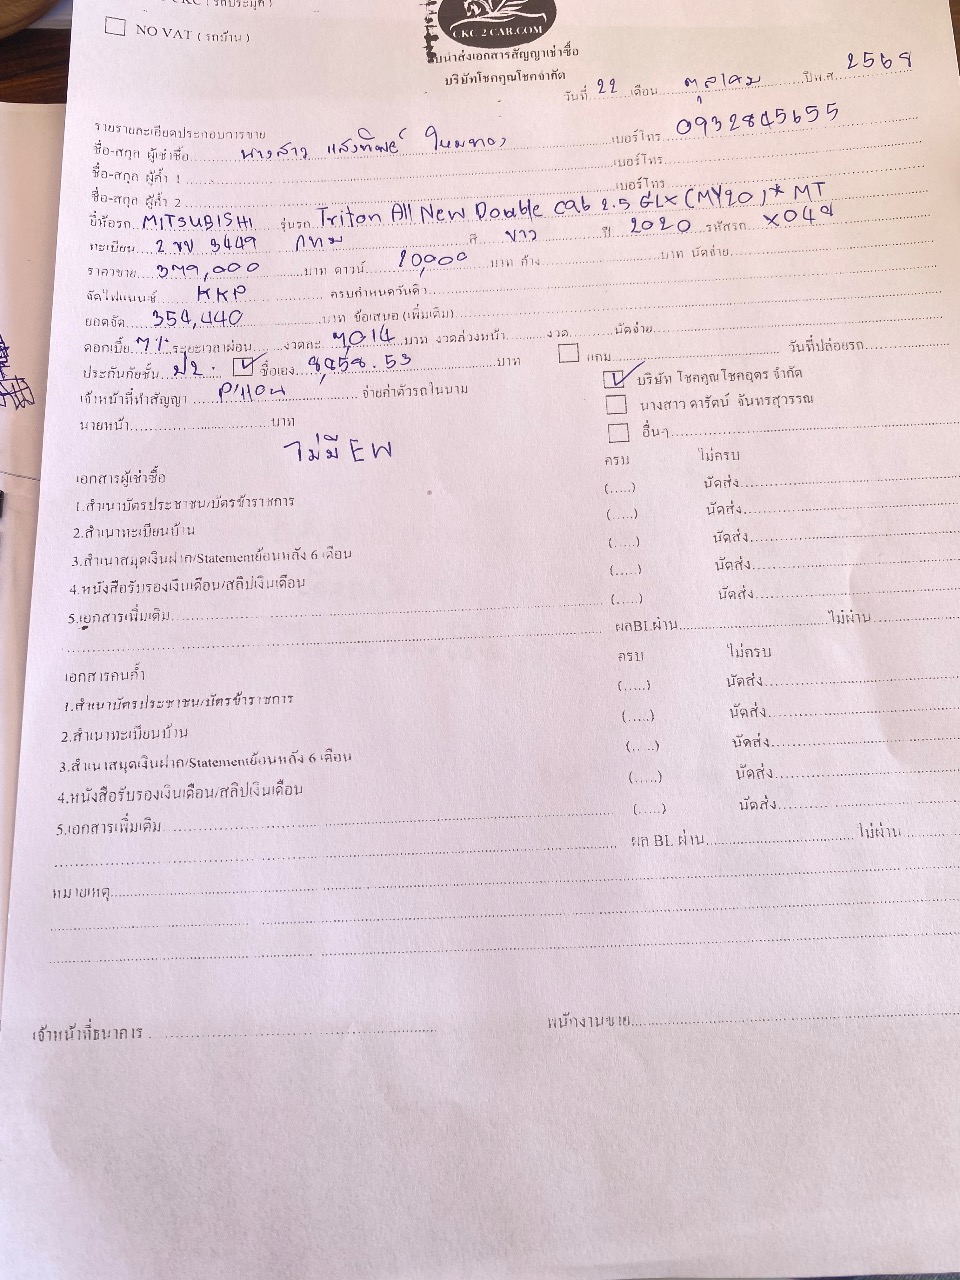 NO VAT ( รถบ้าน )
CKC 2 CAR.COM
ใบนำส่งเอกสารสัญญาเช่าซื้อ
บริษัทโชคคูณโชคจำกัด
วันที่ 22 เดือน ตุลาคม ปีพ.ศ. 2568
รายรายละเอียดประกอบการขาย
ชื่อ-สกุล ผู้เช่าซื้อ นางสาว แสงทิพย์ ใหมทอง เบอร์โทร 0932845655
ชื่อ-สกุล ผู้ค้ำ 1 เบอร์โทร
ชื่อ-สกุล ผู้ค้ำ 2 เบอร์โทร
ยี่ห้อรถ MITSUBISHI รุ่นรถ Triton All New Double Cab 2.5 GLX (MY20)* MT
ทะเบียน 2 ขข 3449 กทม สี ขาว ปี 2020 รหัสรถ
ราคาขาย 379,000 บาท ดาวน์ บาท ค้าง บาท นัดจ่าย
จัดไฟแนนซ์ KKP ครบกำหนดวันคิว
ยอดจัด 354,440 บาท ข้อเสนอ (เพิ่มเติม)
ดอกเบี้ย 7% ระยะเวลาผ่อน งวดละ 7,014 บาท งวดล่วงหน้า งวด นัดจ่าย
ประกันภัยชั้น ป2. ซื้อเอง 8,858.53 บาท แถม วันที่ปล่อยรถ
เจ้าหน้าที่ทำสัญญา จ่ายค่าตัวรถในนาม บริษัท โชคคูณโชคอุดร จำกัด
นายหน้า บาท นางสาว ดารัตน์ จันทรสุวรรณ
อื่นๆ
ไม่มี EW
เอกสารผู้เช่าซื้อ ครบ ไม่ครบ
1.สำเนาบัตรประชาชน/บัตรข้าราชการ (.....) นัดส่ง
2.สำเนาทะเบียนบ้าน (.....) นัดส่ง
3.สำเนาสมุดเงินฝาก/Statementย้อนหลัง 6 เดือน (.....) นัดส่ง
4.หนังสือรับรองเงินเดือน/สลิปเงินเดือน (.....) นัดส่ง
5.เอกสารเพิ่มเติม (.....) นัดส่ง
ผลBLผ่าน ไม่ผ่าน
เอกสารคนค้ำ ครบ ไม่ครบ
1.สำเนาบัตรประชาชน/บัตรข้าราชการ (.....) นัดส่ง
2.สำเนาทะเบียนบ้าน (.....) นัดส่ง
3.สำเนาสมุดเงินฝาก/Statementย้อนหลัง 6 เดือน (.....) นัดส่ง
4.หนังสือรับรองเงินเดือน/สลิปเงินเดือน (.....) นัดส่ง
5.เอกสารเพิ่มเติม (.....) นัดส่ง
ผล BL ผ่าน ไม่ผ่าน
หมายเหตุ
เจ้าหน้าที่ธนาคาร พนักงานขาย